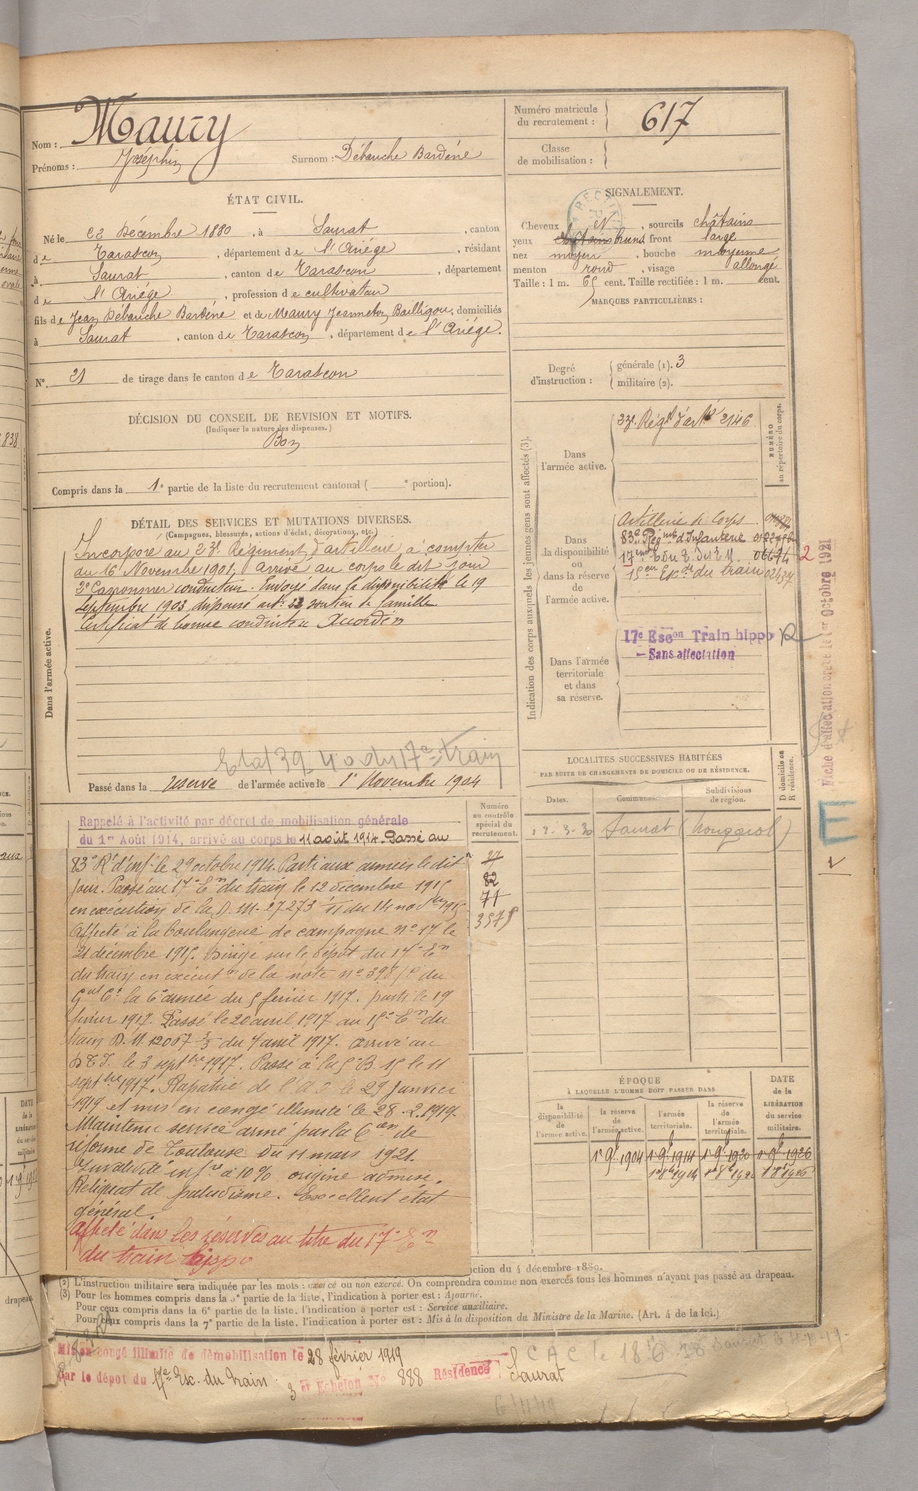 Nom : Maury
Prénoms : Joséphin Surnom : Débauche Bardéné
Numéro matricule du recrutement : 617
Classe de mobilisation :
ÉTAT CIVIL.
Né le 23 Décembre 1880, à Saurat, canton
de Tarascon, département de l'Ariége, résidant
à Saurat, canton de Tarascon, département
de l'Ariége, profession de cultivateur
fils de Jean Débauche Bardéné et de Maury Jeanneton Bailligou, domiciliés
à Saurat, canton de Tarascon, département de l'Ariége.
N° 21 de tirage dans le canton de Tarascon
SIGNALEMENT.
Cheveux N, sourcils châtains
yeux front large
nez moyen, bouche moyenne
menton rond, visage allongé
Taille : 1 m. 65 cent. Taille rectifiée : 1 m. cent.
MARQUES PARTICULIÈRES :
Degré d'instruction : générale (1). 3
militaire (2).
DÉCISION DU CONSEIL DE REVISION ET MOTIFS.
(Indiquer la nature des dispenses.)
Bon
Compris dans la 1e partie de la liste du recrutement cantonal ( e portion).
DÉTAIL DES SERVICES ET MUTATIONS DIVERSES.
(Campagnes, blessures, actions d'éclat, décorations, etc.)
Dans l'armée active.
Incorporé au 23e Régiment d'artillerie à compter
du 16 Novembre 1901, arrivé au corps le dit jour
2e Canonnier conducteur. Envoyé dans la disponibilité le 19
Septembre 1903 dispensé art. 22 soutien de famille
Certificat de bonne conduite Accordé
Etat 39 40 du 17e train
Passé dans la réserve de l'armée active le 1er Novembre 1904
Indication des corps auxquels les jeunes gens sont affectés (3).
NUMÉRO au répertoire du corps.
Dans l'armée active. 23e Régt d'artie 2146
Dans la disponibilité ou dans la réserve de l'armée active.
Artillerie de Corps
83e Régmt d'Infanterie
17me
15em Eson du train
Dans l'armée territoriale et dans sa réserve.
17e Eson Train hippo
- Sans affectation
Fiche d'affectation créée le 1er Octobre 1921
LOCALITÉS SUCCESSIVES HABITÉES
PAR SUITE DE CHANGEMENTS DE DOMICILE OU DE RÉSIDENCE.
Dates. Communes. Subdivisions de région. D domicile ou R résidence.
Saurat
Numéro au contrôle spécial du recrutement.
82
71
Rappelé à l'activité par décret de mobilisation générale
du 1er Août 1914, arrivé au corps le 11 août 1914. Passé au
83e R. d'inf. le 29 octobre 1914. Parti aux armées le dit
jour. Passé au 17e Eon du train le 12 décembre 1915
en exécution de la D. M. 27273 du 14 novbre 1915
Affecté à la boulangerie de campagne n° 17 le
21 décembre 1915. Dirigé sur le dépôt du 17e Eon
du train en exécutn de la note n° du
Gal Ct la 6e armée du 5 février 1917. parti le 19
février 1917. Passé le 20 avril 1917 au 15e Eon du
train D. M 12007 3/3 du 7 avril 1917. arrivé au
le 3 septbre 1917. Passé à la le 11
septbre 1917. Rapatrié de l'A. O. le 29 janvier
1919 et mis en congé illimité le 28-2.1919.
Maintenu service armé par la Con de
réforme de Toulouse du 11 mars 1921.
Invalidité infre à 10 % origine admise.
Reliquat de paludisme. Excellent état
général.
Affecté dans les réserves au titre du 17e Eon
du train hippo
ÉPOQUE
À LAQUELLE L'HOMME DOIT PASSER DANS
la disponibilité de l'armée active. la réserve de l'armée active. l'armée territoriale. la réserve de l'armée territoriale.
DATE de la LIBÉRATION du service militaire.
1er 9bre 1904 1er 9bre 1914 1er 9bre 1920 1er 9bre 1926
ction du 4 décembre 1889.
(2) L'instruction militaire sera indiquée par les mots : exercé ou non exercé. On comprendra comme non exercés tous les hommes n'ayant pas passé au drapeau.
(3) Pour les hommes compris dans la 5e partie de la liste, l'indication à porter est : Ajourné.
Pour ceux compris dans la 6e partie de la liste, l'indication à porter est : Service auxiliaire.
Pour ceux compris dans la 7e partie de la liste, l'indication à porter est : Mis à la disposition du Ministre de la Marine. (Art. 4 de la loi.)
Mis en congé illimité de démobilisation le 28 février 1919
par le dépôt du 17e Esc. du Train 3 er Echelon N° 888 Résidence Saurat